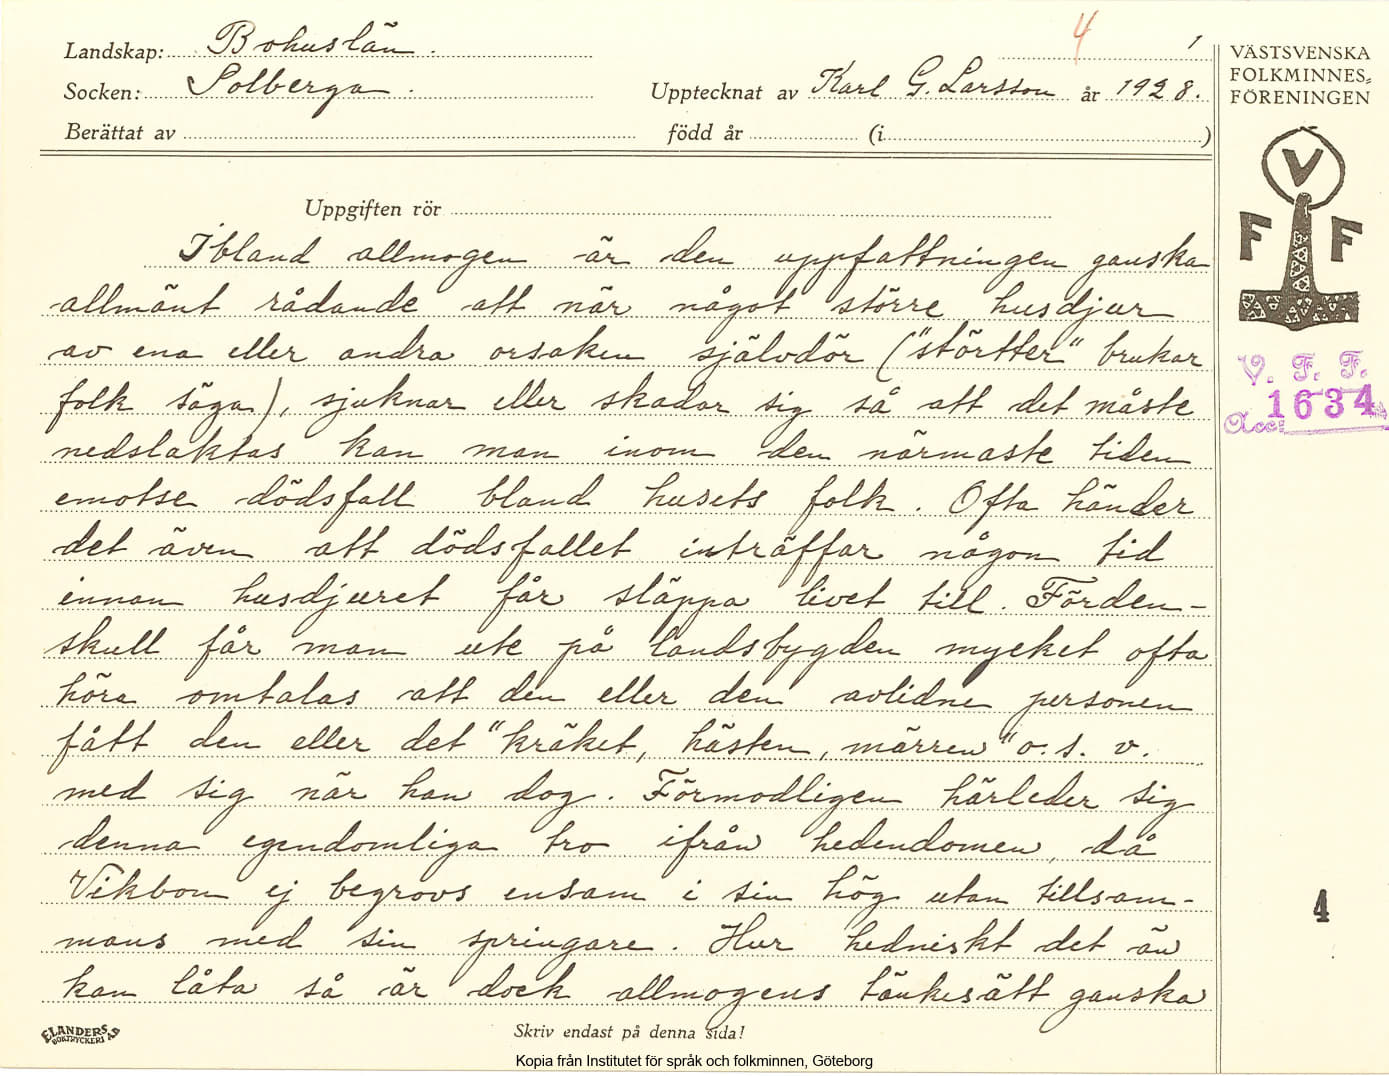 4
1
Landskap: Bohuslän.
Socken: Solberga. Upptecknat av Karl G. Larsson år 1928.
Berättat av född år (i )
VÄSTSVENSKA
FOLKMINNES-
FÖRENINGEN
V
F F
V. F. F.
Acc: 1634
Uppgiften rör
Ibland allmogen är den uppfattningen ganska
allmänt rådande att när något större husdjur
av ena eller andra orsaken självdör ("störtter" brukar
folk säga), sjuknar eller skadar sig så att det måste
nedslaktas kan man inom den närmaste tiden
emotse dödsfall bland husets folk. Ofta händer
det även att dödsfallet inträffar någon tid
innan husdjuret får släppa livet till. Förden-
skull får man ute på landsbygden mycket ofta
höra omtalas att den eller den avlidne personen
fått den eller det "kräket, hästen, märren" o. s. v.
med sig när han dog. Förmodligen härleder sig
denna egendomliga tro ifrån hedendomen, då
Vikbon ej begrovs ensam i sin hög utan tillsam-
mans med sin springare. Hur hedniskt det än
kan låta så är dock allmogens tänkesätt ganska
4
ELANDERS
BOKTRYCKERI AB
Skriv endast på denna sida!
Kopia från Institutet för språk och folkminnen, Göteborg